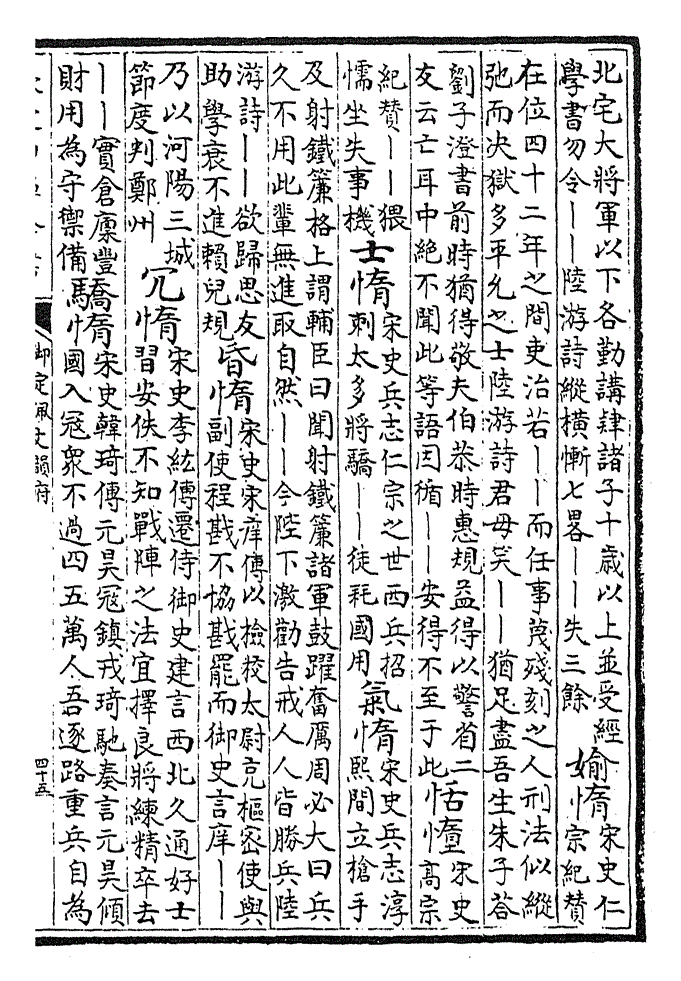 北宅大將軍以下各勤講肄諸子十歲以上並受經
學書勿令——陸游詩縱橫慚七畧——失三餘
媮惰
宋史仁
宗紀贊
在位四十二年之間吏治若——而任事蔑殘刻之人刑法似縱
弛而决獄多平允之士陸游詩君毋笑——猶足盡吾生朱子荅
劉子澄書前時猶得敬夫伯恭時惠規益得以警省二
友云亡耳中絶不聞此等語因循——安得不至于此
恬惰
宋史
高宗
紀贊——猥
懦坐失事機
士惰
宋史兵志仁宗之世西兵招
刺太多將驕——徒耗國用
氣惰
宋史兵志淳
熙間立槍手
及射鐵簾格上謂輔臣曰聞射鐵簾諸軍鼓躍奮厲周必大曰兵
久不用此輩無進取自然——今陛下激勸告戒人人皆勝兵陸
游詩——欲歸思友
助學衰不進賴兒規
昏惰
宋史宋庠傳以檢校太尉充樞密使與
副使程戡不協戡罷而御史言庠——
乃以河陽三城
節度判鄭州
冗惰
宋史李紘傳遷侍御史建言西北久通好士
習安佚不知戰陣之法宜擇良將練精卒去
——實倉廩豐
財用為守禦備
驕惰
宋史韓琦傳元昊冦鎮戎琦馳奏言元昊傾
國入冦衆不過四五萬人吾逐路重兵自為
御定佩文韻府
四十五